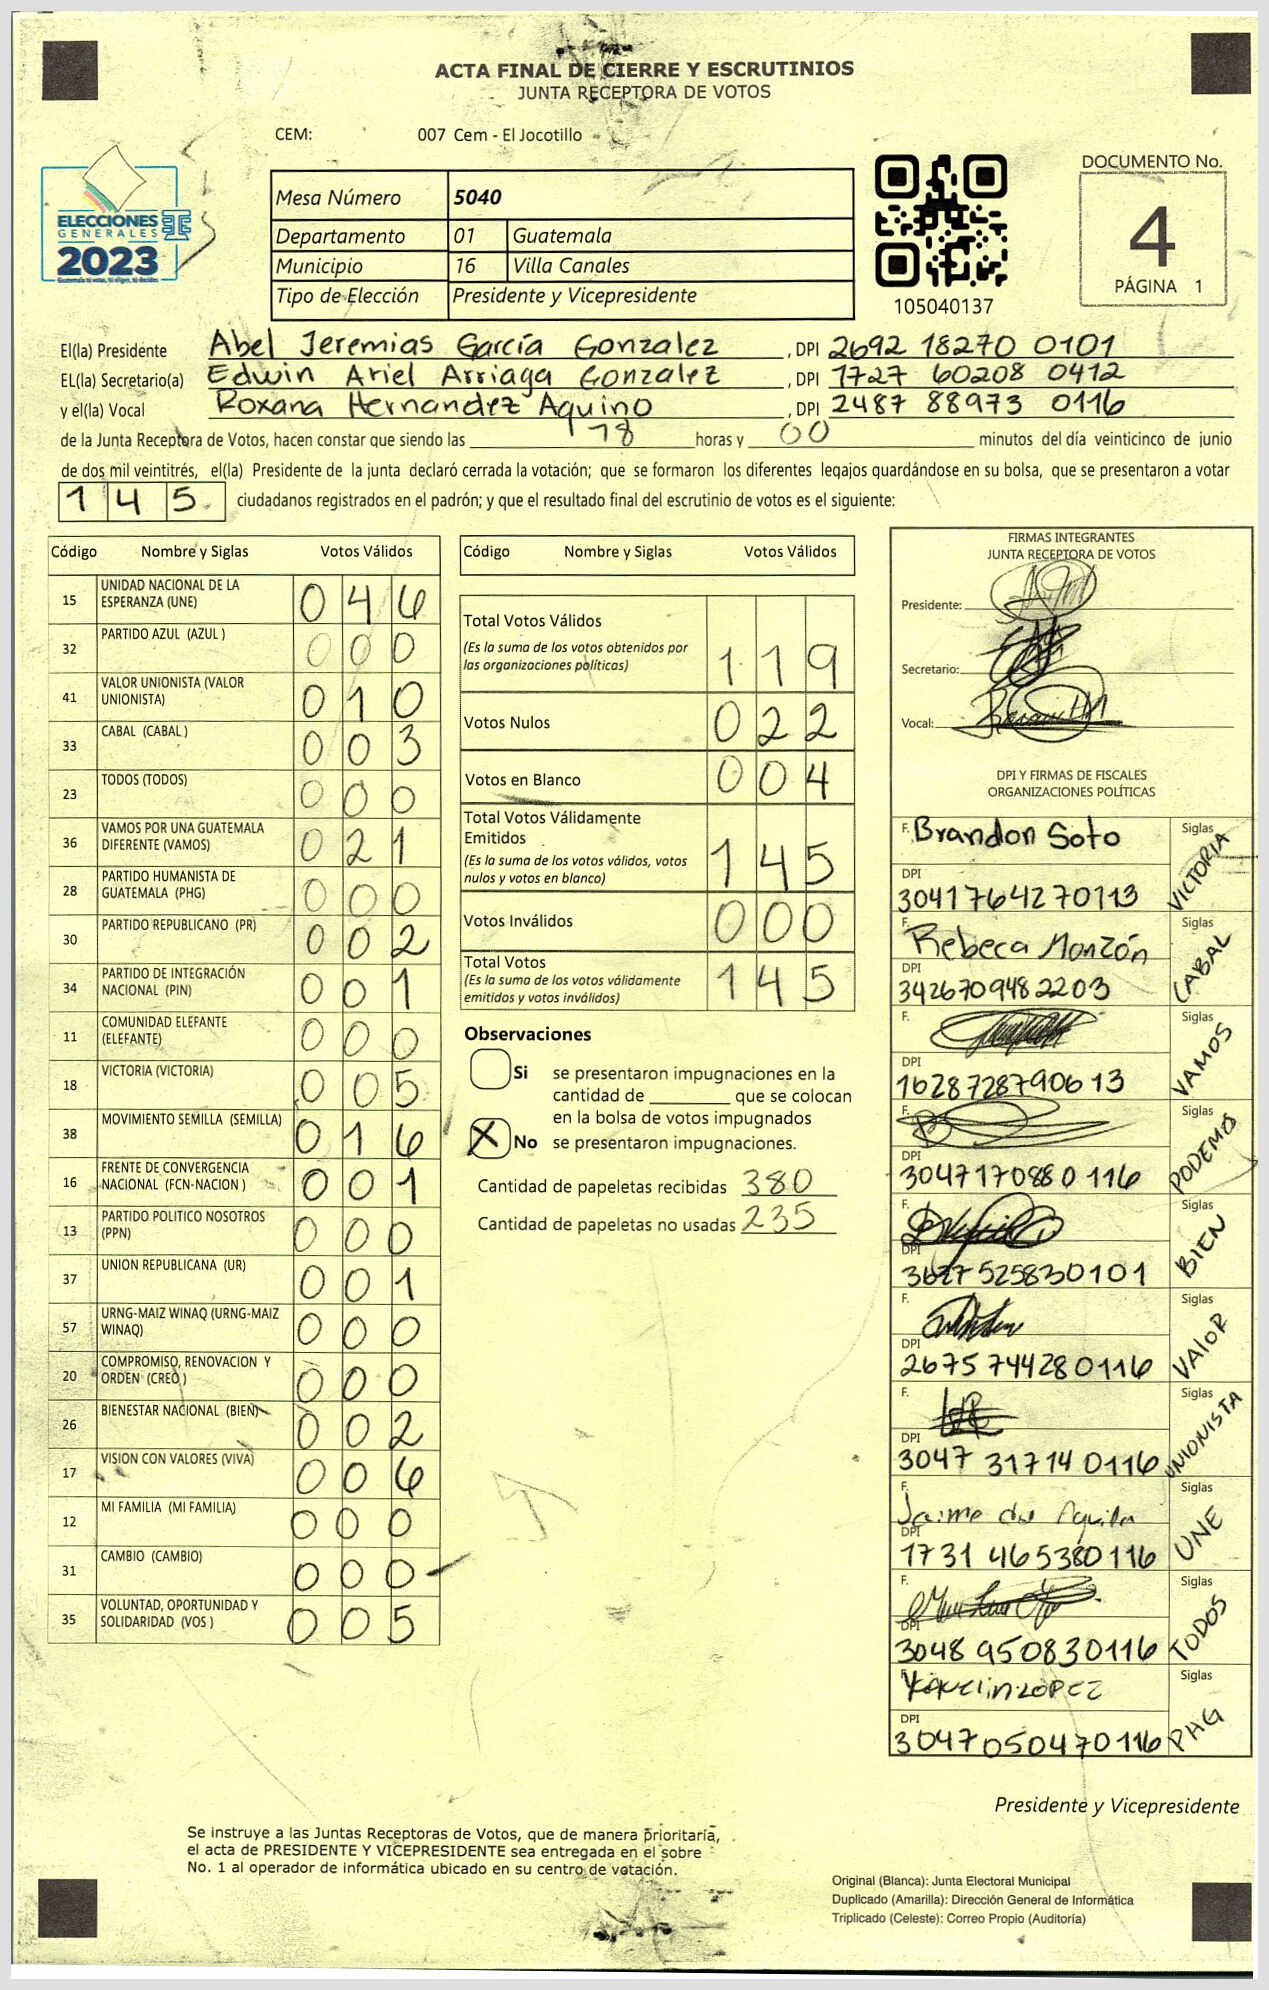 ACTA FINAL DE CIERRE Y ESCRUTINIOS
JUNTA RECEPTORA DE VOTOS
CEM: 007 Cem - El Jocotillo
ELECCIONES
GENERALES
2023
Mesa Número 5040
Departamento 01 Guatemala
Municipio 16 Villa Canales
Tipo de Elección Presidente y Vicepresidente
105040137
DOCUMENTO No.
4
PÁGINA 1
El(la) Presidente Abel Jeremias García Gonzalez , DPI 2692 18270 0101
EL(la) Secretario(a) Edwin Ariel Arriaga Gonzalez , DPI 1727 60208 0412
y el(la) Vocal Roxana Hernandez Aquino , DPI 2487 88973 0116
de la Junta Receptora de Votos, hacen constar que siendo las 18 horas y 00 minutos del día veinticinco de junio
de dos mil veintitrés, el(la) Presidente de la junta declaró cerrada la votación; que se formaron los diferentes legajos guardándose en su bolsa, que se presentaron a votar
145 ciudadanos registrados en el padrón; y que el resultado final del escrutinio de votos es el siguiente:
Código Nombre y Siglas Votos Válidos
15 UNIDAD NACIONAL DE LA ESPERANZA (UNE) 046
32 PARTIDO AZUL (AZUL ) 000
41 VALOR UNIONISTA (VALOR UNIONISTA) 010
33 CABAL (CABAL ) 003
23 TODOS (TODOS) 000
36 VAMOS POR UNA GUATEMALA DIFERENTE (VAMOS) 021
28 PARTIDO HUMANISTA DE GUATEMALA (PHG) 000
30 PARTIDO REPUBLICANO (PR) 002
34 PARTIDO DE INTEGRACIÓN NACIONAL (PIN) 001
11 COMUNIDAD ELEFANTE (ELEFANTE) 000
18 VICTORIA (VICTORIA) 005
38 MOVIMIENTO SEMILLA (SEMILLA) 016
16 FRENTE DE CONVERGENCIA NACIONAL (FCN-NACION ) 001
13 PARTIDO POLITICO NOSOTROS (PPN) 000
37 UNION REPUBLICANA (UR) 001
57 URNG-MAIZ WINAQ (URNG-MAIZ WINAQ) 000
20 COMPROMISO, RENOVACION Y ORDEN (CREO ) 000
26 BIENESTAR NACIONAL (BIEN) 002
17 VISION CON VALORES (VIVA) 006
12 MI FAMILIA (MI FAMILIA) 000
31 CAMBIO (CAMBIO) 000
35 VOLUNTAD, OPORTUNIDAD Y SOLIDARIDAD (VOS ) 005
Código Nombre y Siglas Votos Válidos
Total Votos Válidos 119
(Es la suma de los votos obtenidos por
las organizaciones políticas)
Votos Nulos 022
Votos en Blanco 004
Total Votos Válidamente
Emitidos 145
(Es la suma de los votos válidos, votos
nulos y votos en blanco)
Votos Inválidos 000
Total Votos 145
(Es la suma de los votos válidamente
emitidos y votos inválidos)
Observaciones
Si se presentaron impugnaciones en la
cantidad de ________ que se colocan
en la bolsa de votos impugnados
X No se presentaron impugnaciones.
Cantidad de papeletas recibidas 380
Cantidad de papeletas no usadas 235
FIRMAS INTEGRANTES
JUNTA RECEPTORA DE VOTOS
Presidente:
Secretario:
Vocal:
DPI Y FIRMAS DE FISCALES
ORGANIZACIONES POLÍTICAS
F. Brandon Soto Siglas VICTORIA
DPI 3041764270113
F. Rebeca Monzón Siglas CABAL
DPI 3426709482203
F. Siglas VAMOS
DPI 1628728790613
F. Siglas PODEMOS
DPI 3047170880116
F. Siglas BIEN
DPI 3627525830101
F. Siglas VALOR
DPI 2675744280116
F. Siglas UNIONISTA
DPI 3047 317140116
F. Jaime Siglas UNE
DPI 1731 465380116
F. Siglas TODOS
DPI 3048 950830116
F. LOPEZ Siglas PHG
DPI 3047050470116
Presidente y Vicepresidente
Se instruye a las Juntas Receptoras de Votos, que de manera prioritaría,
el acta de PRESIDENTE Y VICEPRESIDENTE sea entregada en el sobre
No. 1 al operador de informática ubicado en su centro de votación.
Original (Blanca): Junta Electoral Municipal
Duplicado (Amarilla): Dirección General de Informática
Triplicado (Celeste): Correo Propio (Auditoría)